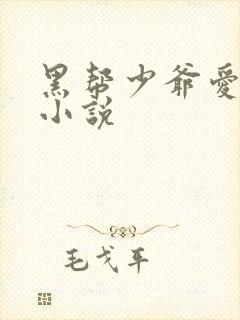 黑帮少爷爱
小説
毛戈平